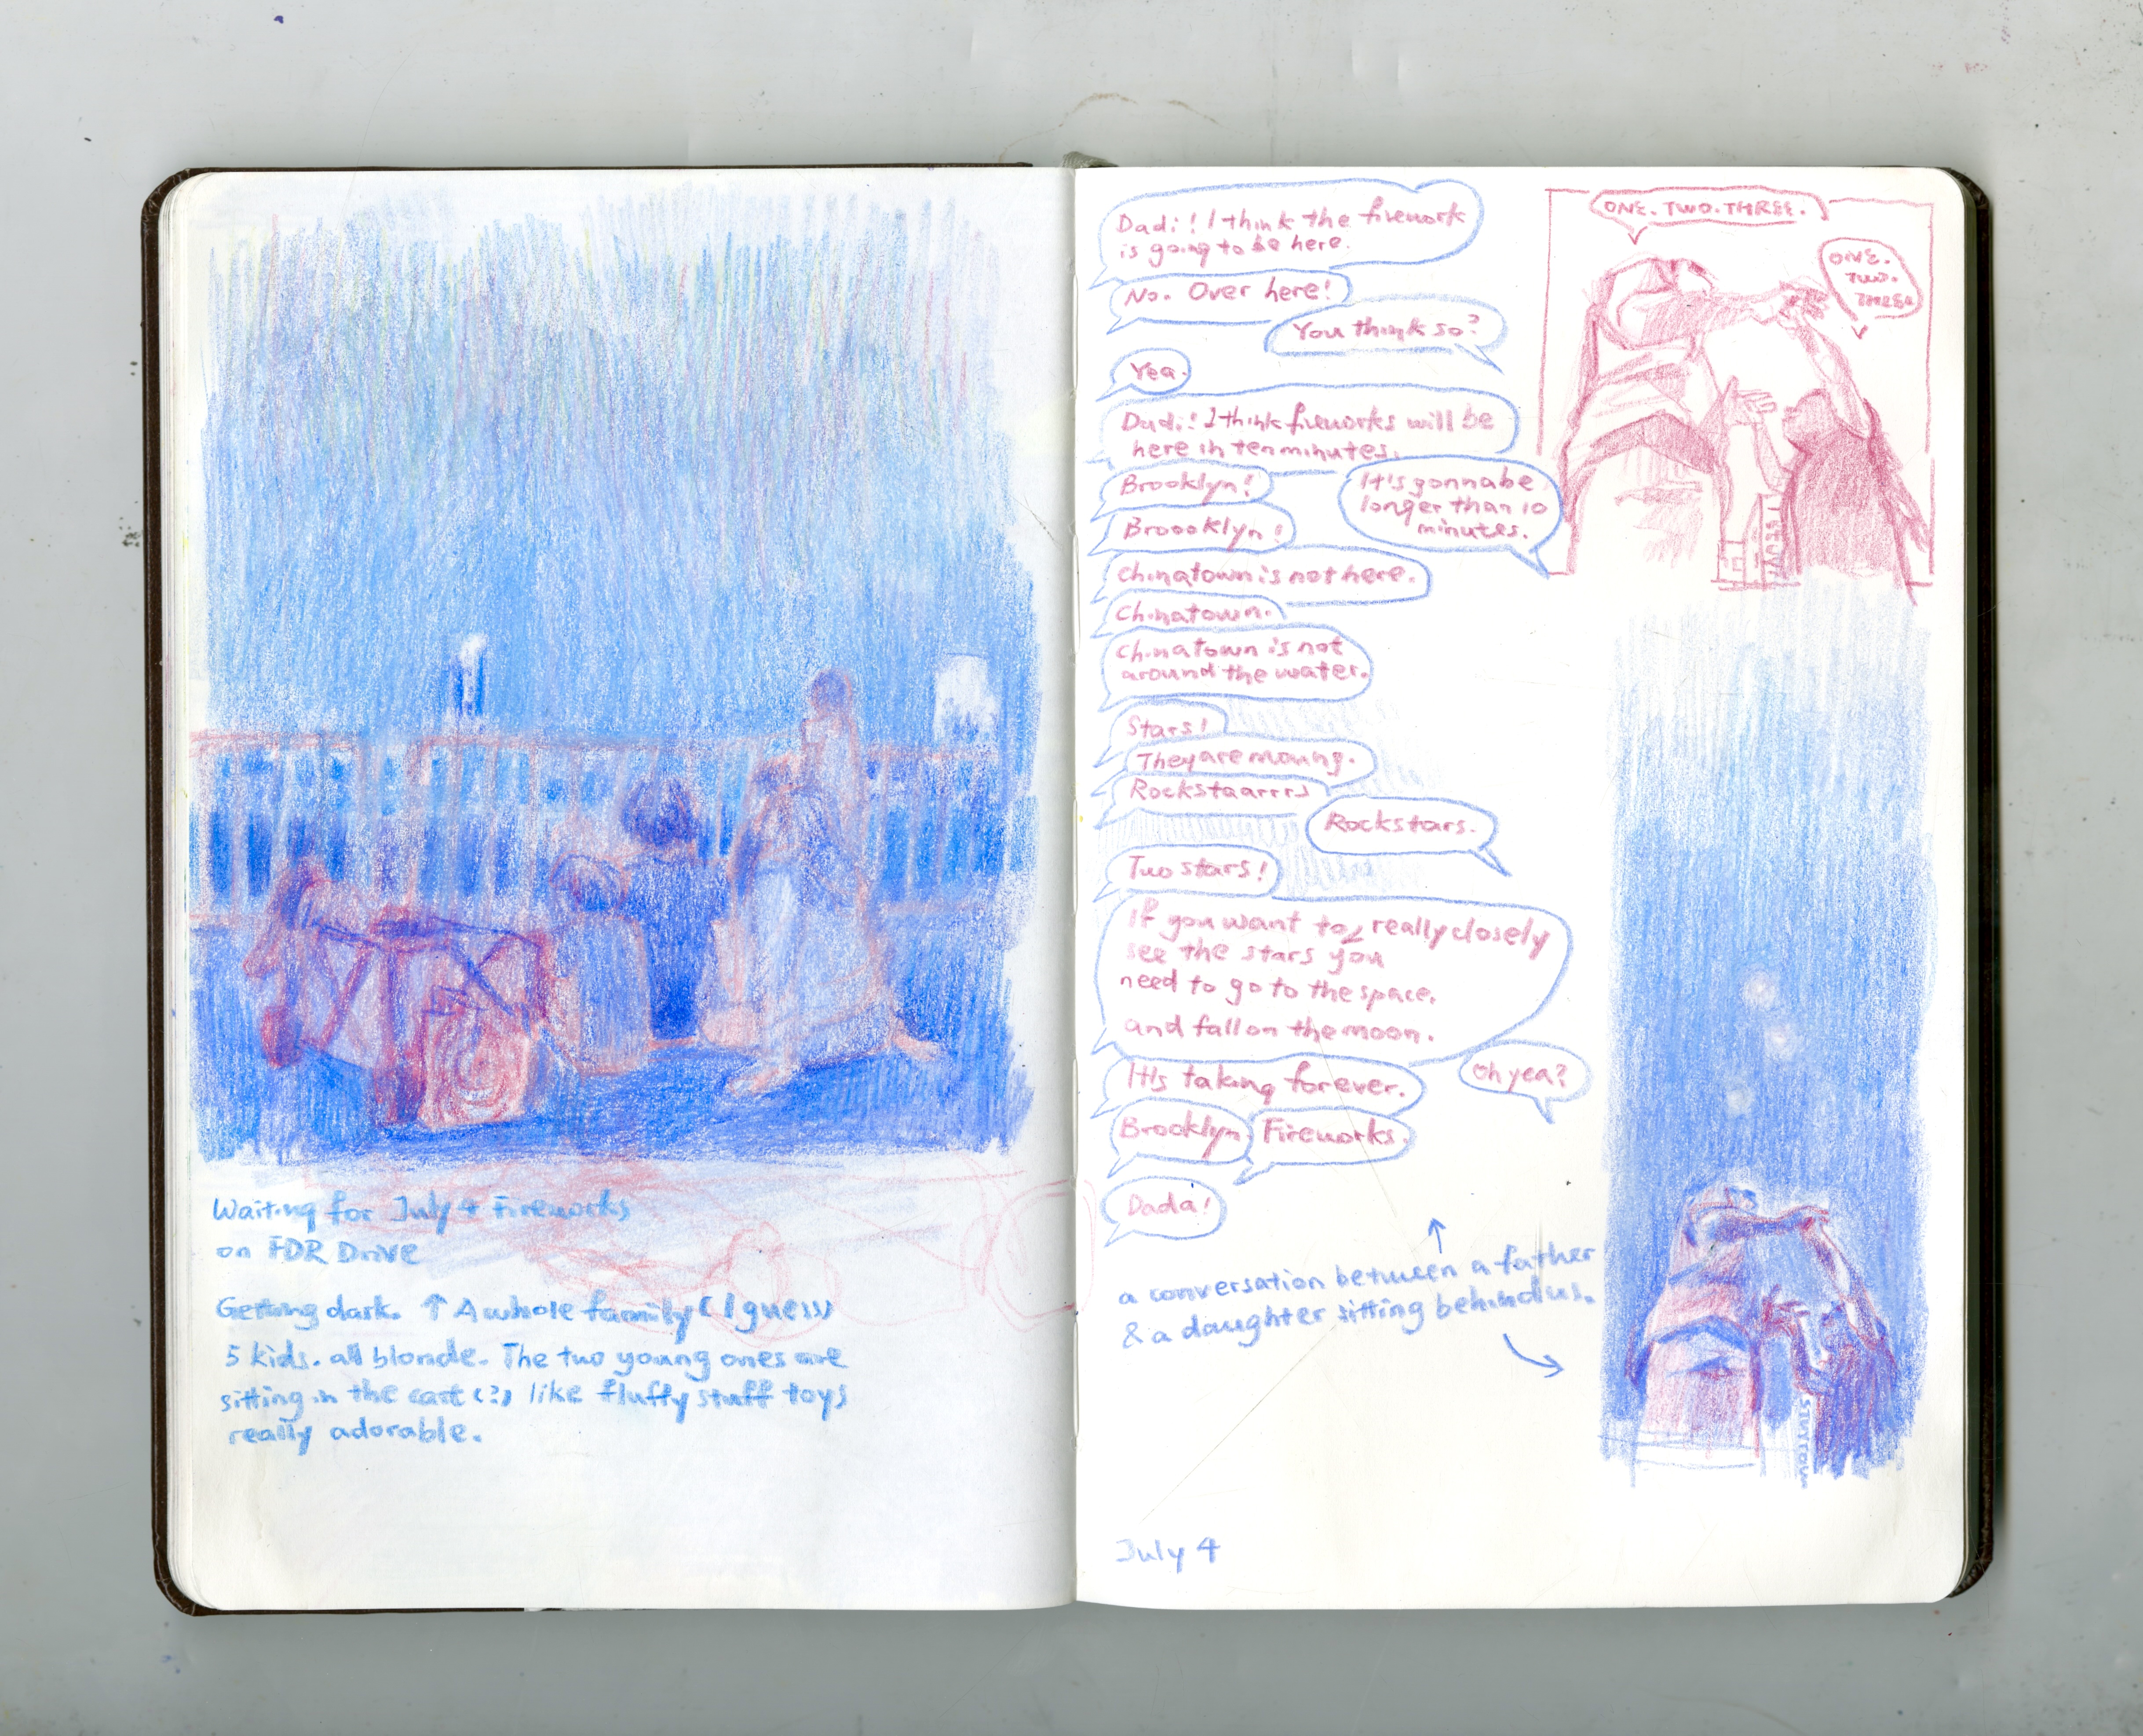 Waiting for July 4 Fireworks
on FDR Drive
Getting dark. ↑ A whole family (I guess)
5 kids. all blonde. The two young ones are
sitting in the cart (?) like fluffy stuff toys
really adorable.
Dadi! I think the firework
is going to be here.
No. Over here!
You think so?
Yea.
Dadi! I think fireworks will be
here in ten minutes.
It's gonna be
longer than 10
minutes.
Brooklyn!
Broooklyn!
Chinatown is not here.
Chinatown.
Chinatown is not
around the water.
Stars!
They are moving.
Rockstaarrrs
Rockstars.
Two stars!
If you want to really closely
see the stars you
need to go to the space.
and fall on the moon.
Oh yea?
It's taking forever.
Brooklyn Fireworks.
Dada!
↑
a conversation between a father
& a daughter sitting behind us.
July 4
ONE. TWO. THREE.
ONE.
TWO.
THREE